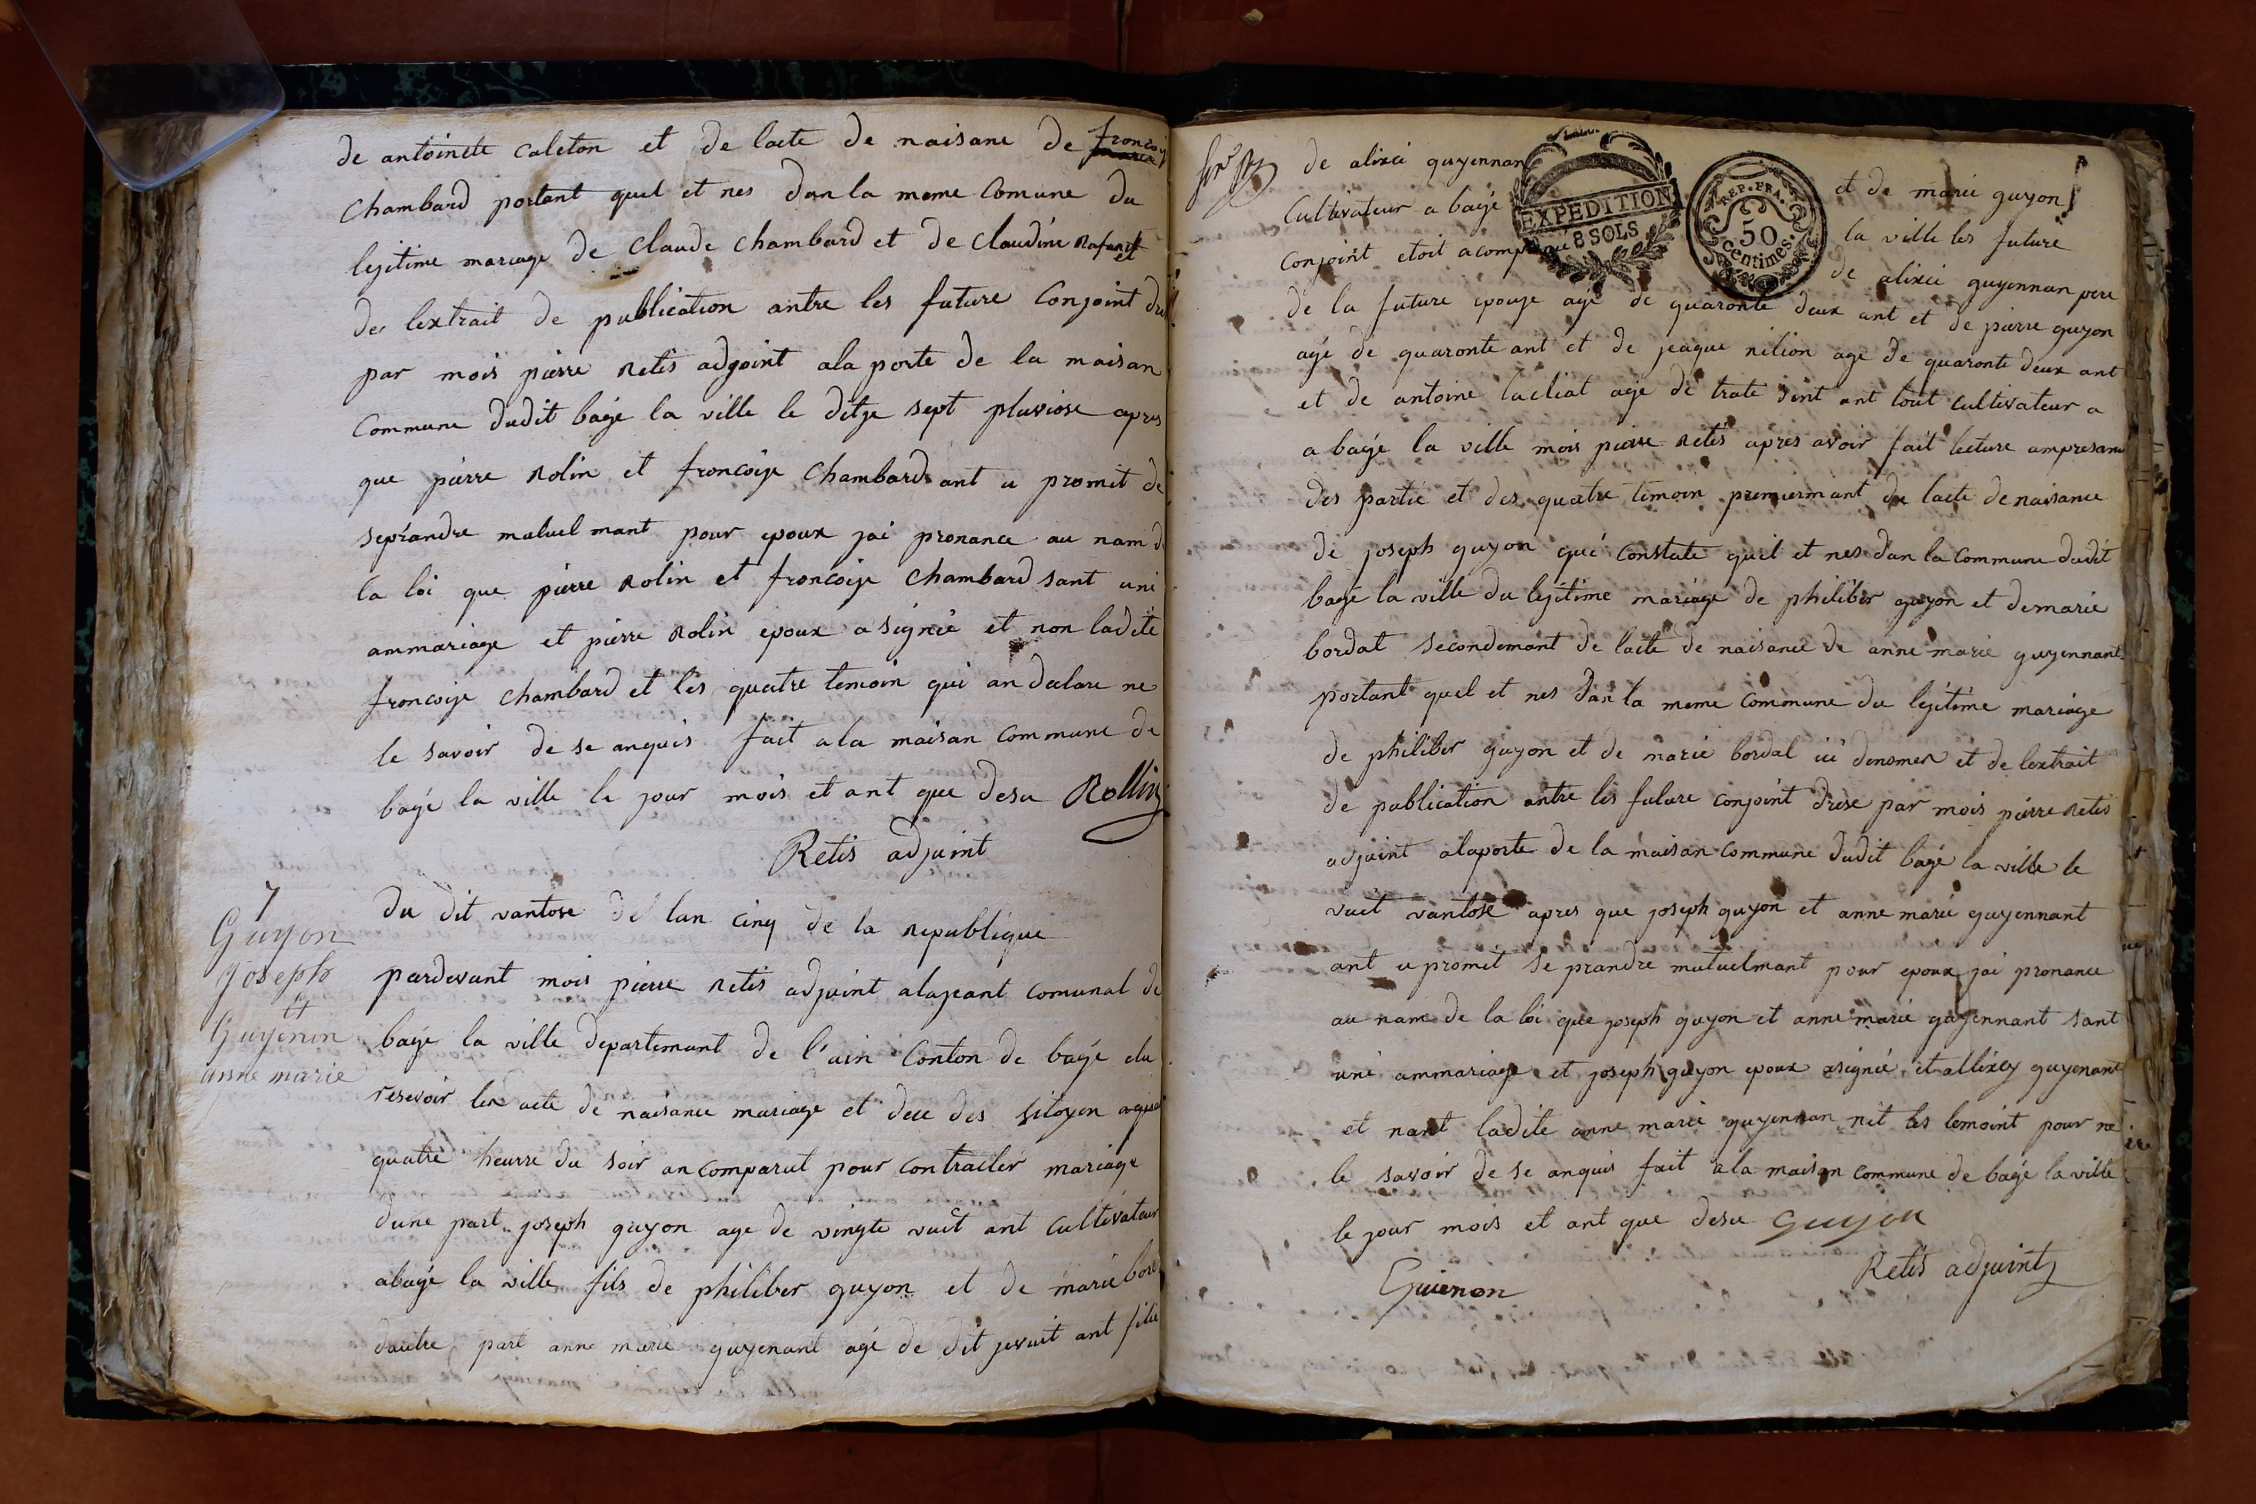 de antoinete caleton et de lacte de naisane de froncois
chambard portant quel et nes dan la meme Comune du
legitime mariage de claude chambard et de claudine Rafanet
des lextrait de publication antre les future Conjoint
par mois pierre Retis adjoint ala porte de la maisan
Commune dudit bagé la ville le ditje sept pluviose apres
que pierre Rolin et froncoije chambard ant u promit de
seprandre mutuel mant pour epoux jai pronance au nam de
la loi que pierre Rolin et froncoije chambard sant uni
ammariage et pierre Rolin epoux a signie et non ladite
froncoije chambard et les quatre temoin qui an declare ne
le savoir de se anquis fait ala maisan commune de
bagé la ville le jour mois et ant que desu Rollin
Retis adjoint
7
Guyon
joseph
et
Guyenin
anne marie
du dit vantose de lan cinq de la Republique
pardevant mois pierre Retis adjoint alajeant comunal de
bagé la ville departemant de l'ain Conton de bagé elu
resevoir les acte de naisance mariage et dece des sitoyen
quatre heurre du soir an comparut pour contracter mariage
dune part joseph guyon age de vingte vuit ant Cultivateur
abagé la ville fils de philiber guyon et de marie
dautre part anne marie guyenant agé de dit jevuit ant
de alixci guyennan et de marie guyon
Cultivateur a bagé la ville les future
Conjoint etoit de alixci guyennan pere
EXPEDITION
8 SOLS
REP. FRA.
50
Centimes.
de la future epouje agé de quaronte deux ant et de pierre guyon
agé de quaronte ant et de jeaque nilion age de quaronte deux ant
et de antoine lacliat agé de trate sint ant tout cultivateur a
a bagé la ville mois pierre Retis apres avoir fait lecture ampresance
des partie et des quatre temoin premiermant de lacte de naisance
de joseph guyon qui constate quil et nes dan la commune dudit
bagé la ville du legitime mariage de philiber guyon et de marie
bordat secondemant de lacte de naisance de anne marie guyennant
portant quel et nes dan la meme commune du legitime mariage
de philiber guyon et de marie bordal ici denomer et de lextrait
de publication antre les future conjoint drese par mois pierre Retis
adjoint alaporte de la maisan commune dudit bagé la ville le
vuit vantose apres que joseph guyon et anne marie guyennant
ant u promit se prandre mutuelmant pour epoux jai pronance
au nam de la loi que joseph guyon et anne marie guyennant sant
uni ammariage et joseph guyon epoux asignié et allixcy guyenant
et nant ladite anne marie guyennan nit les temoint pour ne
le savoir de se anquis fait ala maison commune de bagé la ville
le jour mois et ant que desu guyon
Guienon Retis adjoint